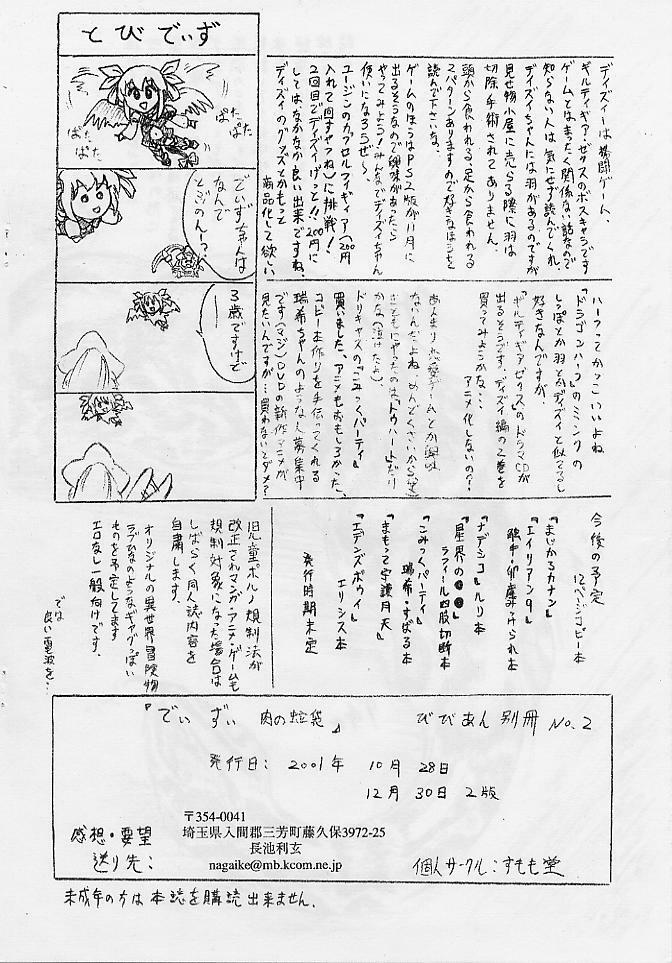 とびでぃず
ぱたぱた
ぱたぱた
でぃずちゃんは
なんで
とぶのん〜?
3歳ですけど
ディズィーは格闘ゲーム、
ギルティギア・ゼクスのボスキャラです
ゲームとはまったく関係ない話なので
知らない人は気にせず読んでくれ
ディズィちゃんには羽があるのですが
見せ物小屋に売らる際に羽は
切除手術されてありません。
頭から食われる、足から食われる
2パターンありますので好きなほうを
読んで下さいな。
ゲームのほうはPS2版が11月に
出るそうなので興味があったら
やってみよう!みんなでディズィちゃん
使いになろうぜ〜
ユージンのカプセルフィギュア(200円
入れて回すやつね)に挑戦!
2回目でディズィげっと!!200円に
してはなかなか良い出来ですね。
ディズィのグッズとかもって
商品化して欲しい
ハーフってかっこいいよね
『ドラゴンハーフ』のミンクの
しっぽとか羽とかディズィと似てるし
好きなんですが、
『ギルティギアゼクス』のドラマCDが
出るそうです、ディズィ編の2巻を
買ってみようかな・・・
アニメ化しないの??
あんまり恋愛ゲームとか興味
ないんだよね、めんどくさいから
かな(泣けたよ)
ドリキャスの『こみっくパーティ』
買いました、アニメもおもしろかった、
コピー本作りを手伝ってくれる
瑞希ちゃんのような人募集中
です(マジ)DVDの新作アニメが
見たいんですが…買わないとダメ?
今後の予定
12ページコピー本
『まじかるカナン』
『エイリアン9』
触手・卵産みつけられ本
『ナデシコ』ルリ本
『星界の●●』
ラフィール四肢切断本
『こみっくパーティ』
瑞希・すばる本
『まもって守護月天』本
『エデンズボゥイ』
エリシス本
発行時期未定
児童ポルノ規制法が
改正されマンガ・アニメ・ゲームも
規制対象になった場合は
しばらく同人誌内容を
自粛します。
オリジナルの異世界冒険物
ラブひなのようなギャグっぽい
ものを予定してます
エロなし一般向けです。
では
良い電波を…
『でぃずぃ 肉の蛇袋』 びびあん別冊 No.2
発行日: 2001年 10月 28日
12月 30日 2版
〒354-0041
埼玉県入間郡三芳町藤久保3972-25
長池利玄
nagaike@mb.kcom.ne.jp
感想・要望
送り先:
個人サークル:すもも堂
未成年の方は本誌を購読出来ません.